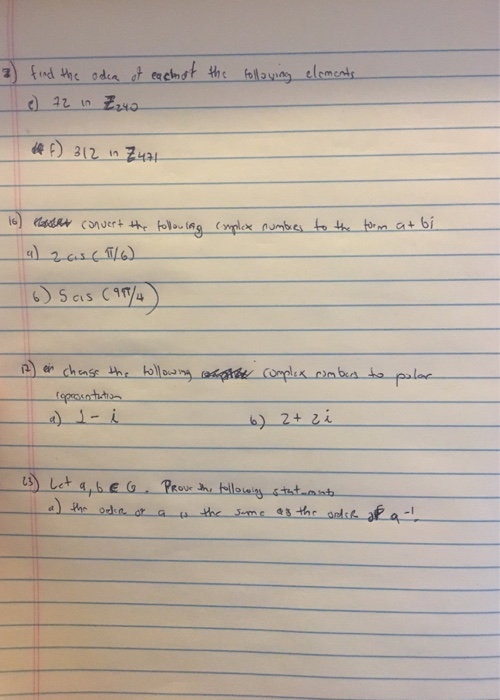 3) find the order of each of the following elements
e) 72 in Z240
f) 312 in Z471
10) convert the following complex numbers to the form a + bi
a) 2 cis (π/6)
b) 5 cis (9π/4)
12) change the following complex numbers to polar
representation
a) 1 - i b) 2 + 2i
23) Let a, b ∈ G. Prove the following statements
a) the order of a is the same as the order of a⁻¹.